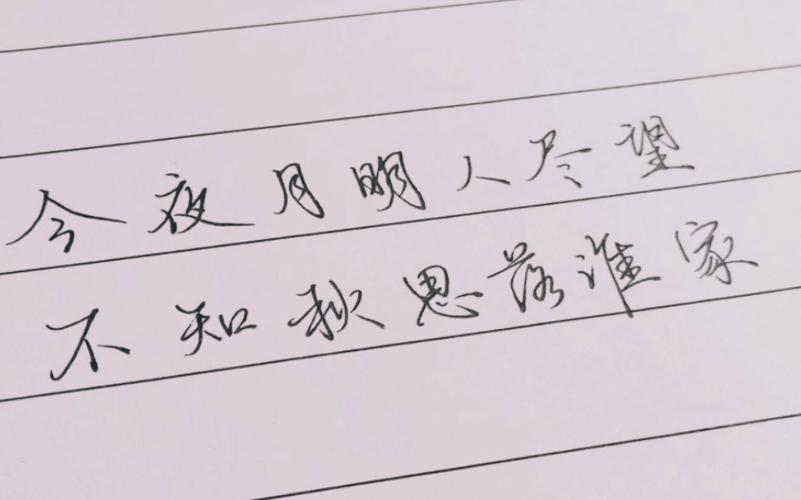 今夜月明人尽望
不知秋思落谁家